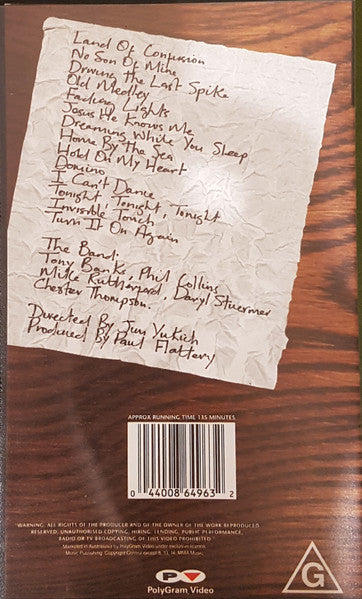 Land Of Confusion
No Son Of Mine
Driving The Last Spike
Old Medley
Fading Lights
Jesus He Knows Me
Dreaming While You Sleep
Home By The Sea
Hold On My Heart
Domino
I Can't Dance
Tonight, Tonight, Tonight
Invisible Touch
Turn It On Again
The Band:
Tony Banks, Phil Collins
Mike Rutherford, Daryl Stuermer
Chester Thompson.
Directed By Jim Yukich
Produced By Paul Flattery
APPROX RUNNING TIME 135 MINUTES
0 44008 64963 2
"WARNING: ALL RIGHTS OF THE PRODUCER AND OF THE OWNER OF THE WORK REPRODUCED
RESERVED. UNAUTHORISED COPYING, HIRING, LENDING, PUBLIC PERFORMANCE,
RADIO OR TV BROADCASTING OF THIS VIDEO PROHIBITED."
Marketed in Australasia by PolyGram Video under exclusive licence.
Music Publishing: Copyright Control except 8, 13, 14, MMA Music.
PV
PolyGram Video
G